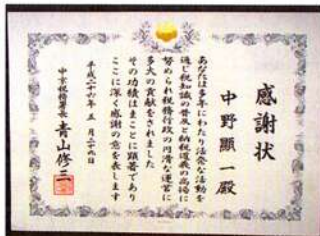 感謝状
中野顯一殿
あなたは多年にわたり活発な活動を
通じ税知識の普及と納税道義の高揚に
努められ税務行政の円滑な運営に
多大の貢献をされました
その功績はまことに顕著であり
ここに深く感謝の意を表します
平成二十六年五月二十九日
中京税務署長 青山修三